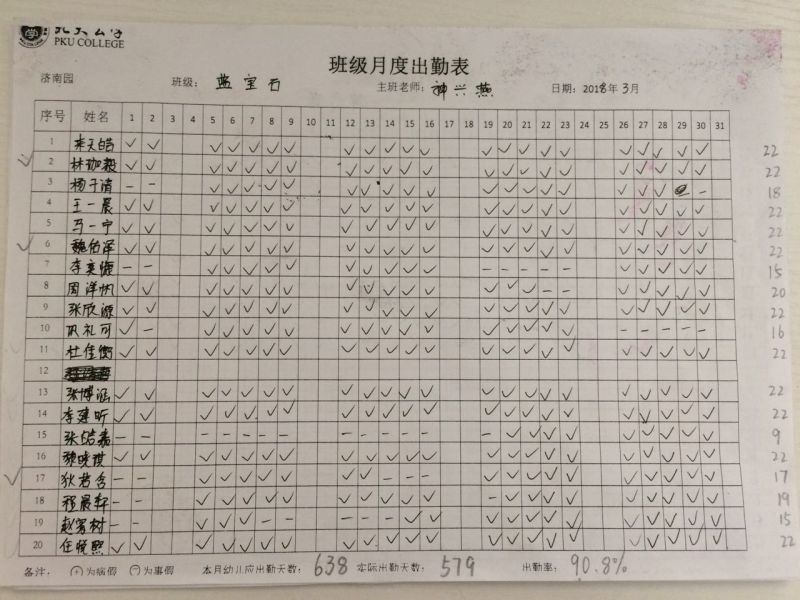 PKU COLLEGE
班级月度出勤表
济南园 班级: 蓝宝石 主班老师: 神兴燕 日期: 2018年3月
序号 姓名 1 2 3 4 5 6 7 8 9 10 11 12 13 14 15 16 17 18 19 20 21 22 23 24 25 26 27 28 29 30 31
1 ✓ ✓ ✓ ✓ ✓ ✓ ✓ ✓ ✓ ✓ ✓ ✓ ✓ ✓ ✓ ✓ ✓ ✓ ✓ ✓ ✓ ✓ 22
2 林珈毅 ✓ ✓ ✓ ✓ ✓ ✓ ✓ ✓ ✓ ✓ ✓ ✓ ✓ ✓ ✓ ✓ ✓ ✓ ✓ ✓ ✓ ✓ 22
3 杨子清 – – ✓ ✓ ✓ ✓ ✓ ✓ ✓ ✓ ✓ ✓ ✓ ✓ ✓ ✓ ✓ ✓ ✓ ✓ – 18
4 王一晨 ✓ ✓ ✓ ✓ ✓ ✓ ✓ ✓ ✓ ✓ ✓ ✓ ✓ ✓ ✓ ✓ ✓ ✓ ✓ ✓ ✓ ✓ 22
5 马一宁 ✓ ✓ ✓ ✓ ✓ ✓ ✓ ✓ ✓ ✓ ✓ ✓ ✓ ✓ ✓ ✓ ✓ ✓ ✓ ✓ ✓ ✓ 22
6 魏佑泽 ✓ ✓ ✓ ✓ ✓ ✓ ✓ ✓ ✓ ✓ ✓ ✓ ✓ ✓ ✓ ✓ ✓ ✓ ✓ ✓ ✓ ✓ 22
7 – – ✓ ✓ ✓ ✓ ✓ ✓ ✓ ✓ ✓ ✓ – – – – – ✓ ✓ ✓ ✓ ✓ 15
8 周洋帆 ✓ ✓ ✓ ✓ ✓ ✓ ✓ ✓ ✓ ✓ ✓ ✓ ✓ ✓ ✓ – – ✓ ✓ ✓ ✓ ✓ 20
9 张欣源 ✓ ✓ ✓ ✓ ✓ ✓ ✓ ✓ ✓ ✓ ✓ ✓ ✓ ✓ ✓ ✓ ✓ ✓ ✓ ✓ ✓ ✓ 22
10 礼可 ✓ – ✓ ✓ ✓ ✓ ✓ ✓ ✓ ✓ ✓ ✓ ✓ ✓ ✓ ✓ ✓ – – – – – 16
11 杜佳衡 ✓ ✓ ✓ ✓ ✓ ✓ ✓ ✓ ✓ ✓ ✓ ✓ ✓ ✓ ✓ ✓ ✓ ✓ ✓ ✓ ✓ ✓ 22
12
13 张博涵 ✓ ✓ ✓ ✓ ✓ ✓ ✓ ✓ ✓ ✓ ✓ ✓ ✓ ✓ ✓ ✓ ✓ ✓ ✓ ✓ ✓ ✓ 22
14 李建昕 ✓ ✓ ✓ ✓ ✓ ✓ ✓ ✓ ✓ ✓ ✓ ✓ ✓ ✓ ✓ ✓ ✓ ✓ ✓ ✓ ✓ ✓ 22
15 张皓嘉 – – – – – – – – – – – – – ✓ ✓ ✓ ✓ ✓ ✓ ✓ ✓ ✓ 9
16 魏晓琪 ✓ ✓ ✓ ✓ ✓ ✓ ✓ ✓ ✓ ✓ ✓ ✓ ✓ ✓ ✓ ✓ ✓ ✓ ✓ ✓ ✓ ✓ 22
17 狄若含 – – ✓ ✓ ✓ ✓ ✓ ✓ ✓ – – – ✓ ✓ ✓ ✓ ✓ ✓ ✓ ✓ ✓ ✓ 17
18 程晨轩 – – ✓ ✓ ✓ ✓ ✓ ✓ ✓ ✓ ✓ ✓ – ✓ ✓ ✓ ✓ ✓ ✓ ✓ ✓ ✓ 19
19 赵家树 – – ✓ ✓ ✓ – – – – – ✓ ✓ ✓ ✓ ✓ ✓ ✓ ✓ ✓ ✓ ✓ ✓ 15
20 任悦熙 ✓ ✓ ✓ ✓ ✓ ✓ ✓ ✓ ✓ ✓ ✓ ✓ ✓ ✓ ✓ ✓ ✓ ✓ ✓ ✓ ✓ ✓ 22
备注: (+)为病假 (-)为事假 本月幼儿应出勤天数: 638 实际出勤天数: 579 出勤率: 90.8%